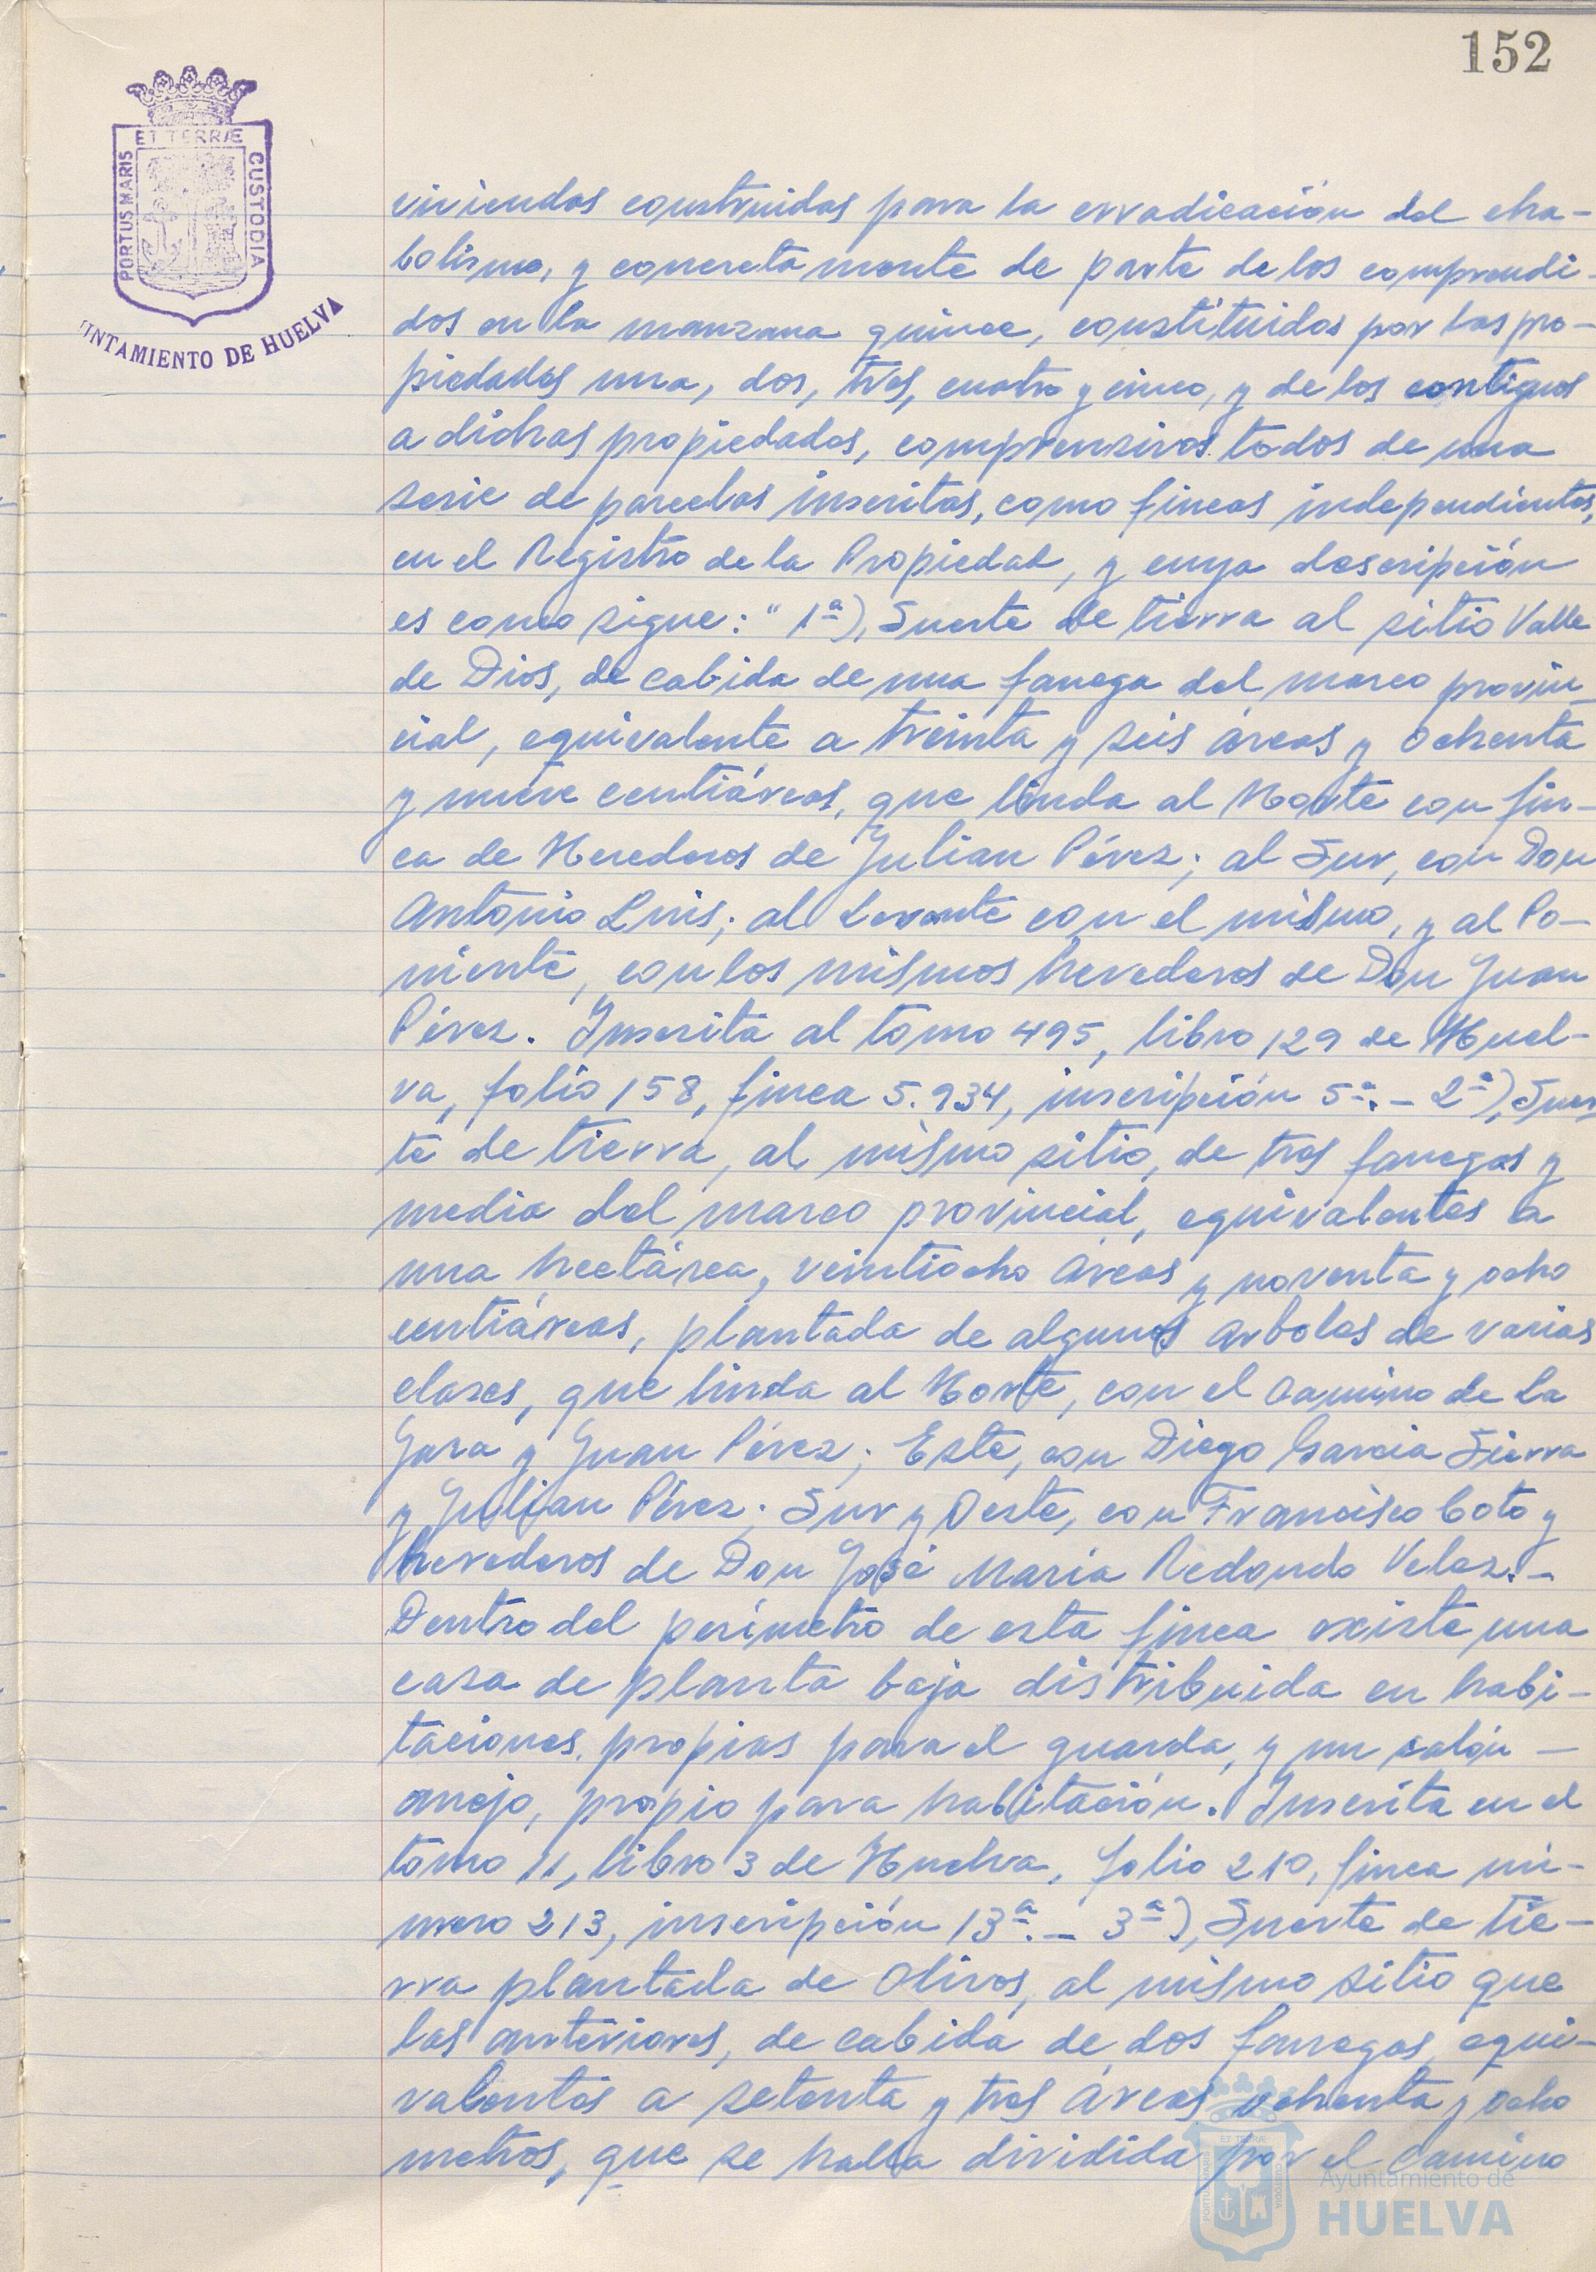 152
ET TERRÆ
PORTUS MARIS
CUSTODIA
UNTAMIENTO DE HUELVA
viviendas construidas para la erradicación del cha-
bolismo, y concretamente de parte de los comprendi-
dos en la manzana quince, constituidos por las pro-
piedades una, dos, tres, cuatro y cinco, y de los contiguos
a dichas propiedades, comprensivos todos de una
serie de parcelas inscritas, como fincas independientes,
en el Registro de la Propiedad, y cuya descripción
es como sigue: "1ª), Suerte de tierra al sitio Valle
de Dios, de cabida de una fanega del marco provin-
cial, equivalente a treinta y seis áreas y ochenta
y nueve centiáreas, que linda al Norte con fin-
ca de Herederos de Julian Pérez; al Sur, con Don
Antonio Luis; al Levante con el mismo, y al Po-
niente, con los mismos herederos de Don Juan
Pérez. Inscrita al tomo 495, libro 129 de Huel-
va, folio 158, finca 5.934, inscripción 5ª.- 2ª), Suer-
te de tierra, al mismo sitio, de tres fanegas y
media del marco provincial, equivalentes a
una hectárea, veintiocho áreas y noventa y ocho
centiáreas, plantada de algunos arboles de varias
clases, que linda al Norte, con el camino de la
Jara y Juan Pérez; Este, con Diego Garcia Sierra
y Julian Pérez; Sur y Oeste, con Francisco Coto y
herederos de Don José Maria Redondo Velez.-
Dentro del perímetro de esta finca existe una
casa de planta baja distribuida en habi-
taciones, propias para el guarda, y un salón -
anejo, propio para habitación. Inscrita en el
tomo 11, libro 3 de Huelva, folio 210, finca nú-
mero 213, inscripción 13ª.- 3ª), Suerte de tie-
rra plantada de olivos, al mismo sitio que
las anteriores, de cabida de dos fanegas, equi-
valentes a setenta y tres áreas ochenta y ocho
metros, que se halla dividida por el camino
ET TERRÆ
PORTUS MARIS
CUSTODIA
Ayuntamiento de
HUELVA